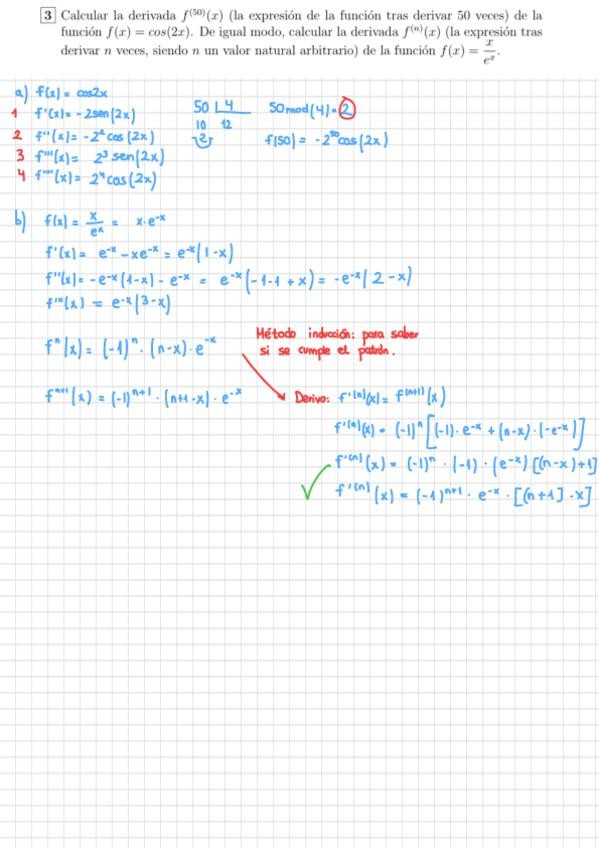 3 Calcular la derivada f⁽⁵⁰⁾(x) (la expresión de la función tras derivar 50 veces) de la
función f(x) = cos(2x). De igual modo, calcular la derivada f⁽ⁿ⁾(x) (la expresión tras
derivar n veces, siendo n un valor natural arbitrario) de la función f(x) = x/eˣ.
a) f(x) = cos2x
1 f'(x) = -2sen(2x)
2 f''(x) = -2² cos(2x)
3 f'''(x) = 2³ sen(2x)
4 f''''(x) = 2⁴ cos(2x)
50 4
10 12
2
50 mod(4) = 2
f(50) = -2⁵⁰cos(2x)
b) f(x) = x/eˣ = x·e⁻ˣ
f'(x) = e⁻ˣ - xe⁻ˣ = e⁻ˣ(1-x)
f''(x) = -e⁻ˣ(1-x) - e⁻ˣ = e⁻ˣ(-1-1+x) = -e⁻ˣ(2-x)
f'''(x) = e⁻ˣ(3-x)
fⁿ(x) = (-1)ⁿ · (n-x) · e⁻ˣ
fⁿ⁺¹(x) = (-1)ⁿ⁺¹ · (n+1-x) · e⁻ˣ
Método inducción: para saber
si se cumple el patrón.
Derivo: f'⁽ⁿ⁾(x) = f⁽ⁿ⁺¹⁾(x)
f'⁽ⁿ⁾(x) = (-1)ⁿ [(-1)·e⁻ˣ + (n-x)·(-e⁻ˣ)]
f'⁽ⁿ⁾(x) = (-1)ⁿ · (-1) · (e⁻ˣ) [(n-x)+1]
f'⁽ⁿ⁾(x) = (-1)ⁿ⁺¹ · e⁻ˣ · [(n+1)-x]